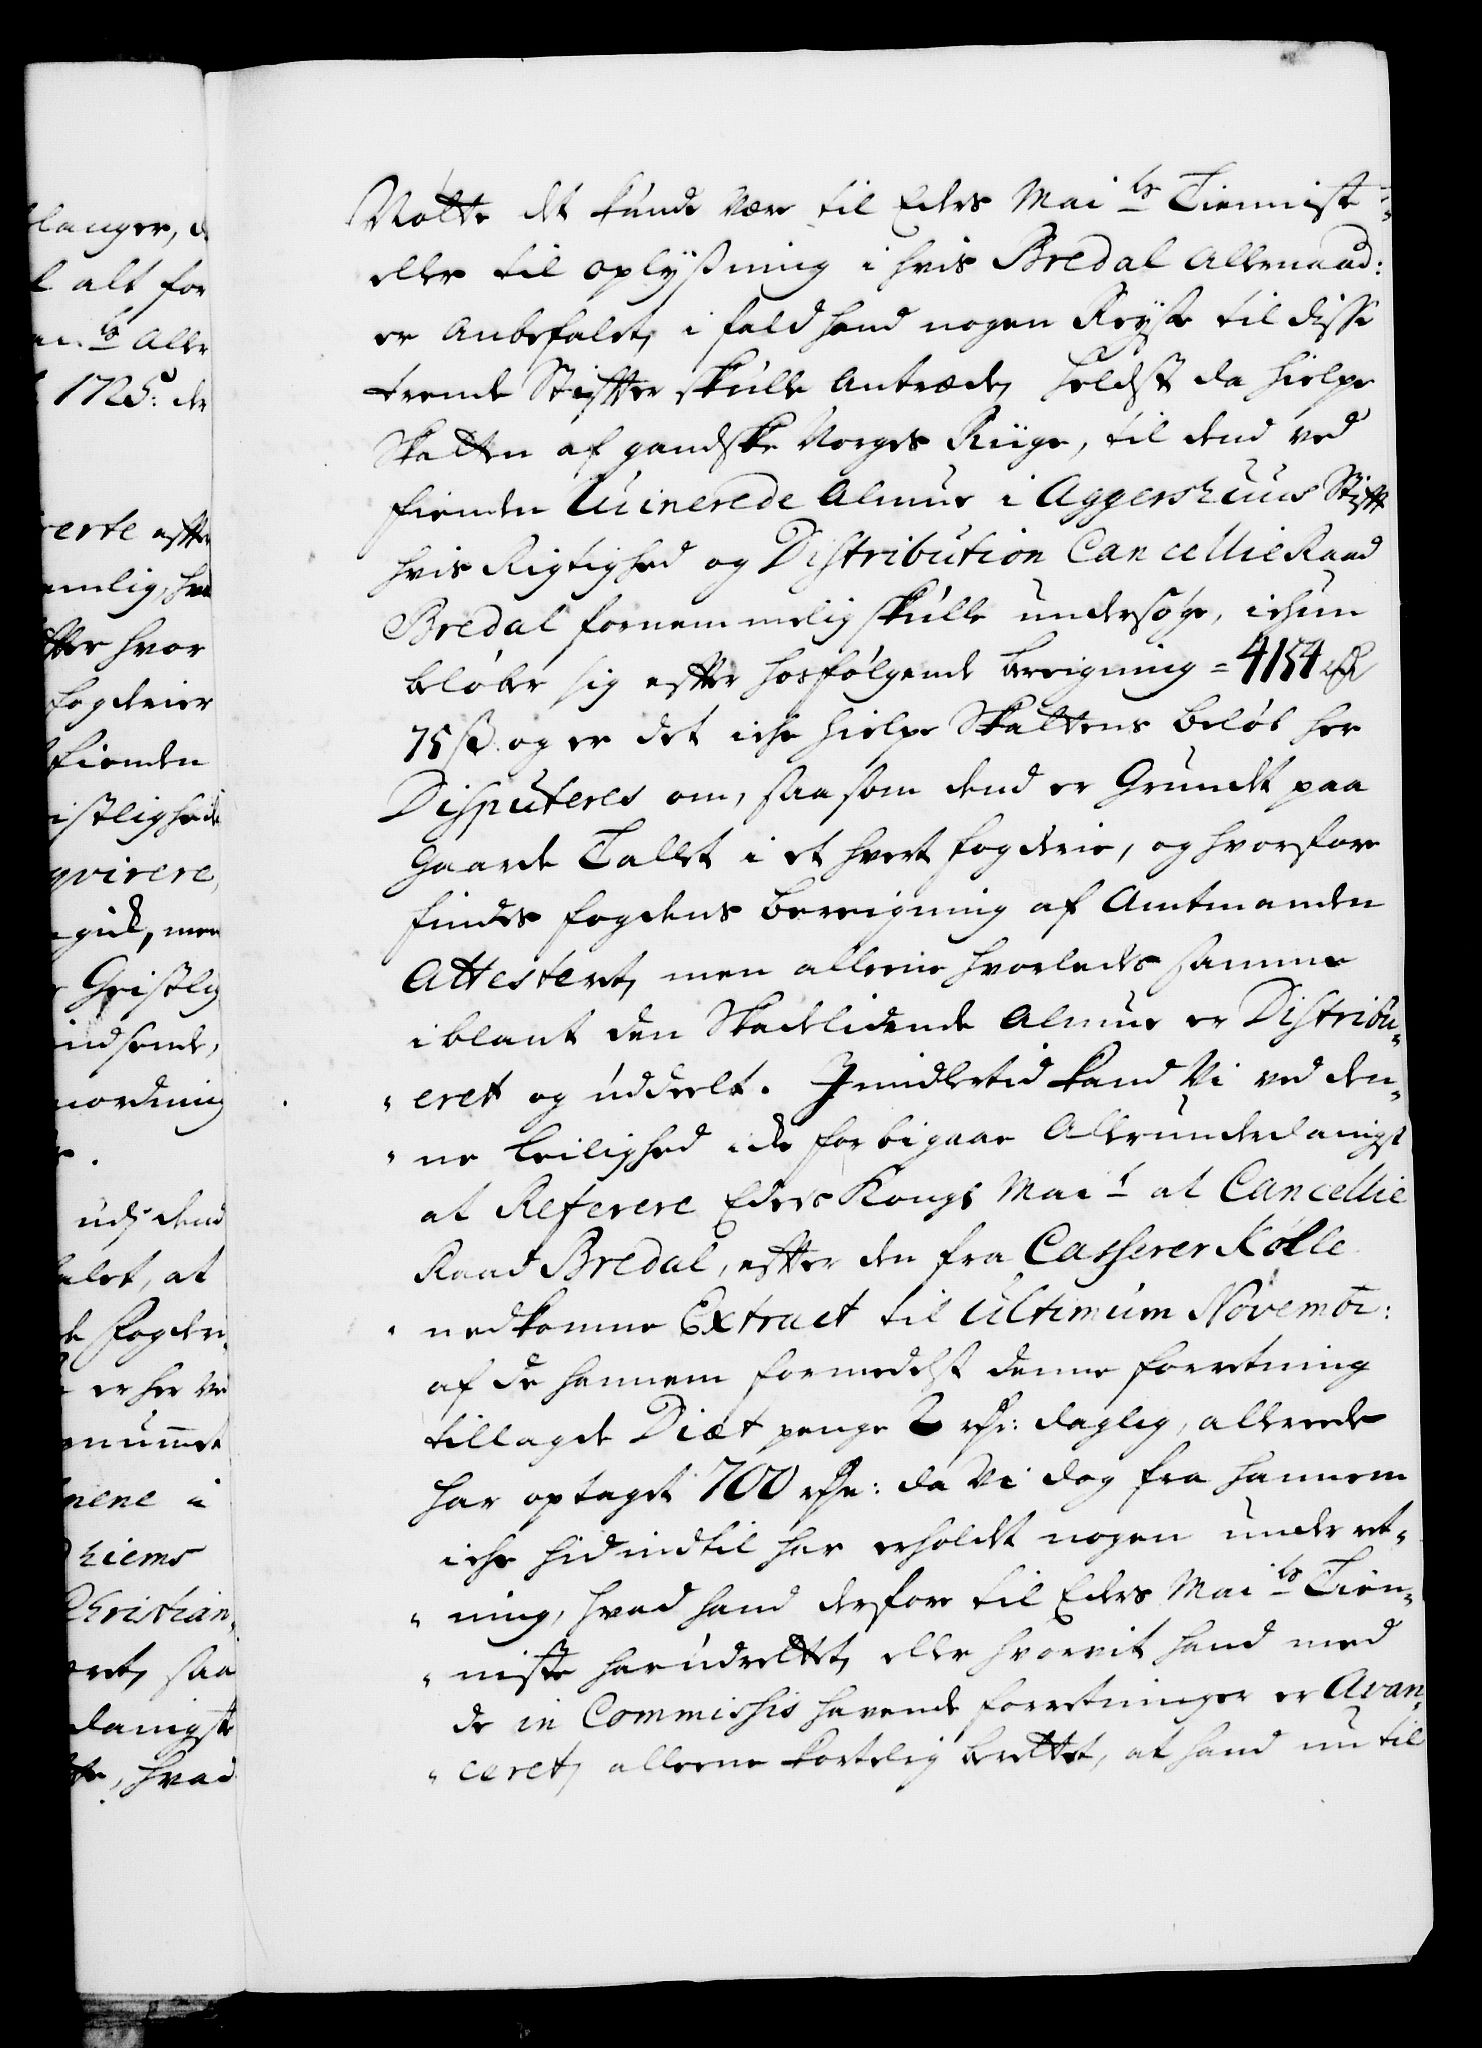 langer, d
l alt for
ts Aller
1725: der
erte efter
emlig, hva
ter hvor
fogderier
fienden
istlighed
qvirere,
gid, men
Geistlig
indsende,
nordning
udj dend
alet, at
de Fogderi„
er her ve
enummet
mene i
hiems
Christian„
eret, saa
danigste
hvad
Motte det kunde være til Eders Mai ts Tienniste
eller til oplyßning i hvis Bredal Allernaad:
er Anbefalet, i fald hand nogen Reyse til disse
trende Stifter skulle Antræde, heldst da hielpe
Skatten af gandske Norges Riige, til dend ved
fienden Ruinerede Almue i Aggershuus Stift
hvis Rigtighed og Distribution Cancellie Raad
Bredal fornemmelig skulle undersøge, ichun
beløber sig efter hosfølgende bereigning = 4154 rdr
75 ß. og er det iche hielpe Skattens beløb her
Disputeres om, saasom dend er Grundet paa
Gaarde Tallet i et hvert fogderie, og hvorfore
findes fogdens bereigning af Amtmanden
Attesteret, men alleene hvorledes samme
iblant den Skadelidende Almue er Distribu„
„ eret og uddeelt. Imidlertid kand Vi ved den„
„ ne Leilighed iche forbigaae Allerunderdanigst
at Referere Eders Kongl Mai t at Cancellie
Raad Bredal, efter den fra Casserer Kølle
„ nedkomne Extract til Ultimum Novembr:
af de hannem formedelst denne forretning
tillagde Diæt penge 2 rdr: daglig, allereede
har optaget 700 rdr: da Vi dog fra hannem
iche hid indtil har erholdet nogen underret„
„ ning, hvad hand derfore til Eders Mai ts Tien„
„ niste har udrettet, eller hvorvit hand med
de in Commissis havende forretninger er Avan„
„ ceret, alleene kortelig berettet, at hand nu til